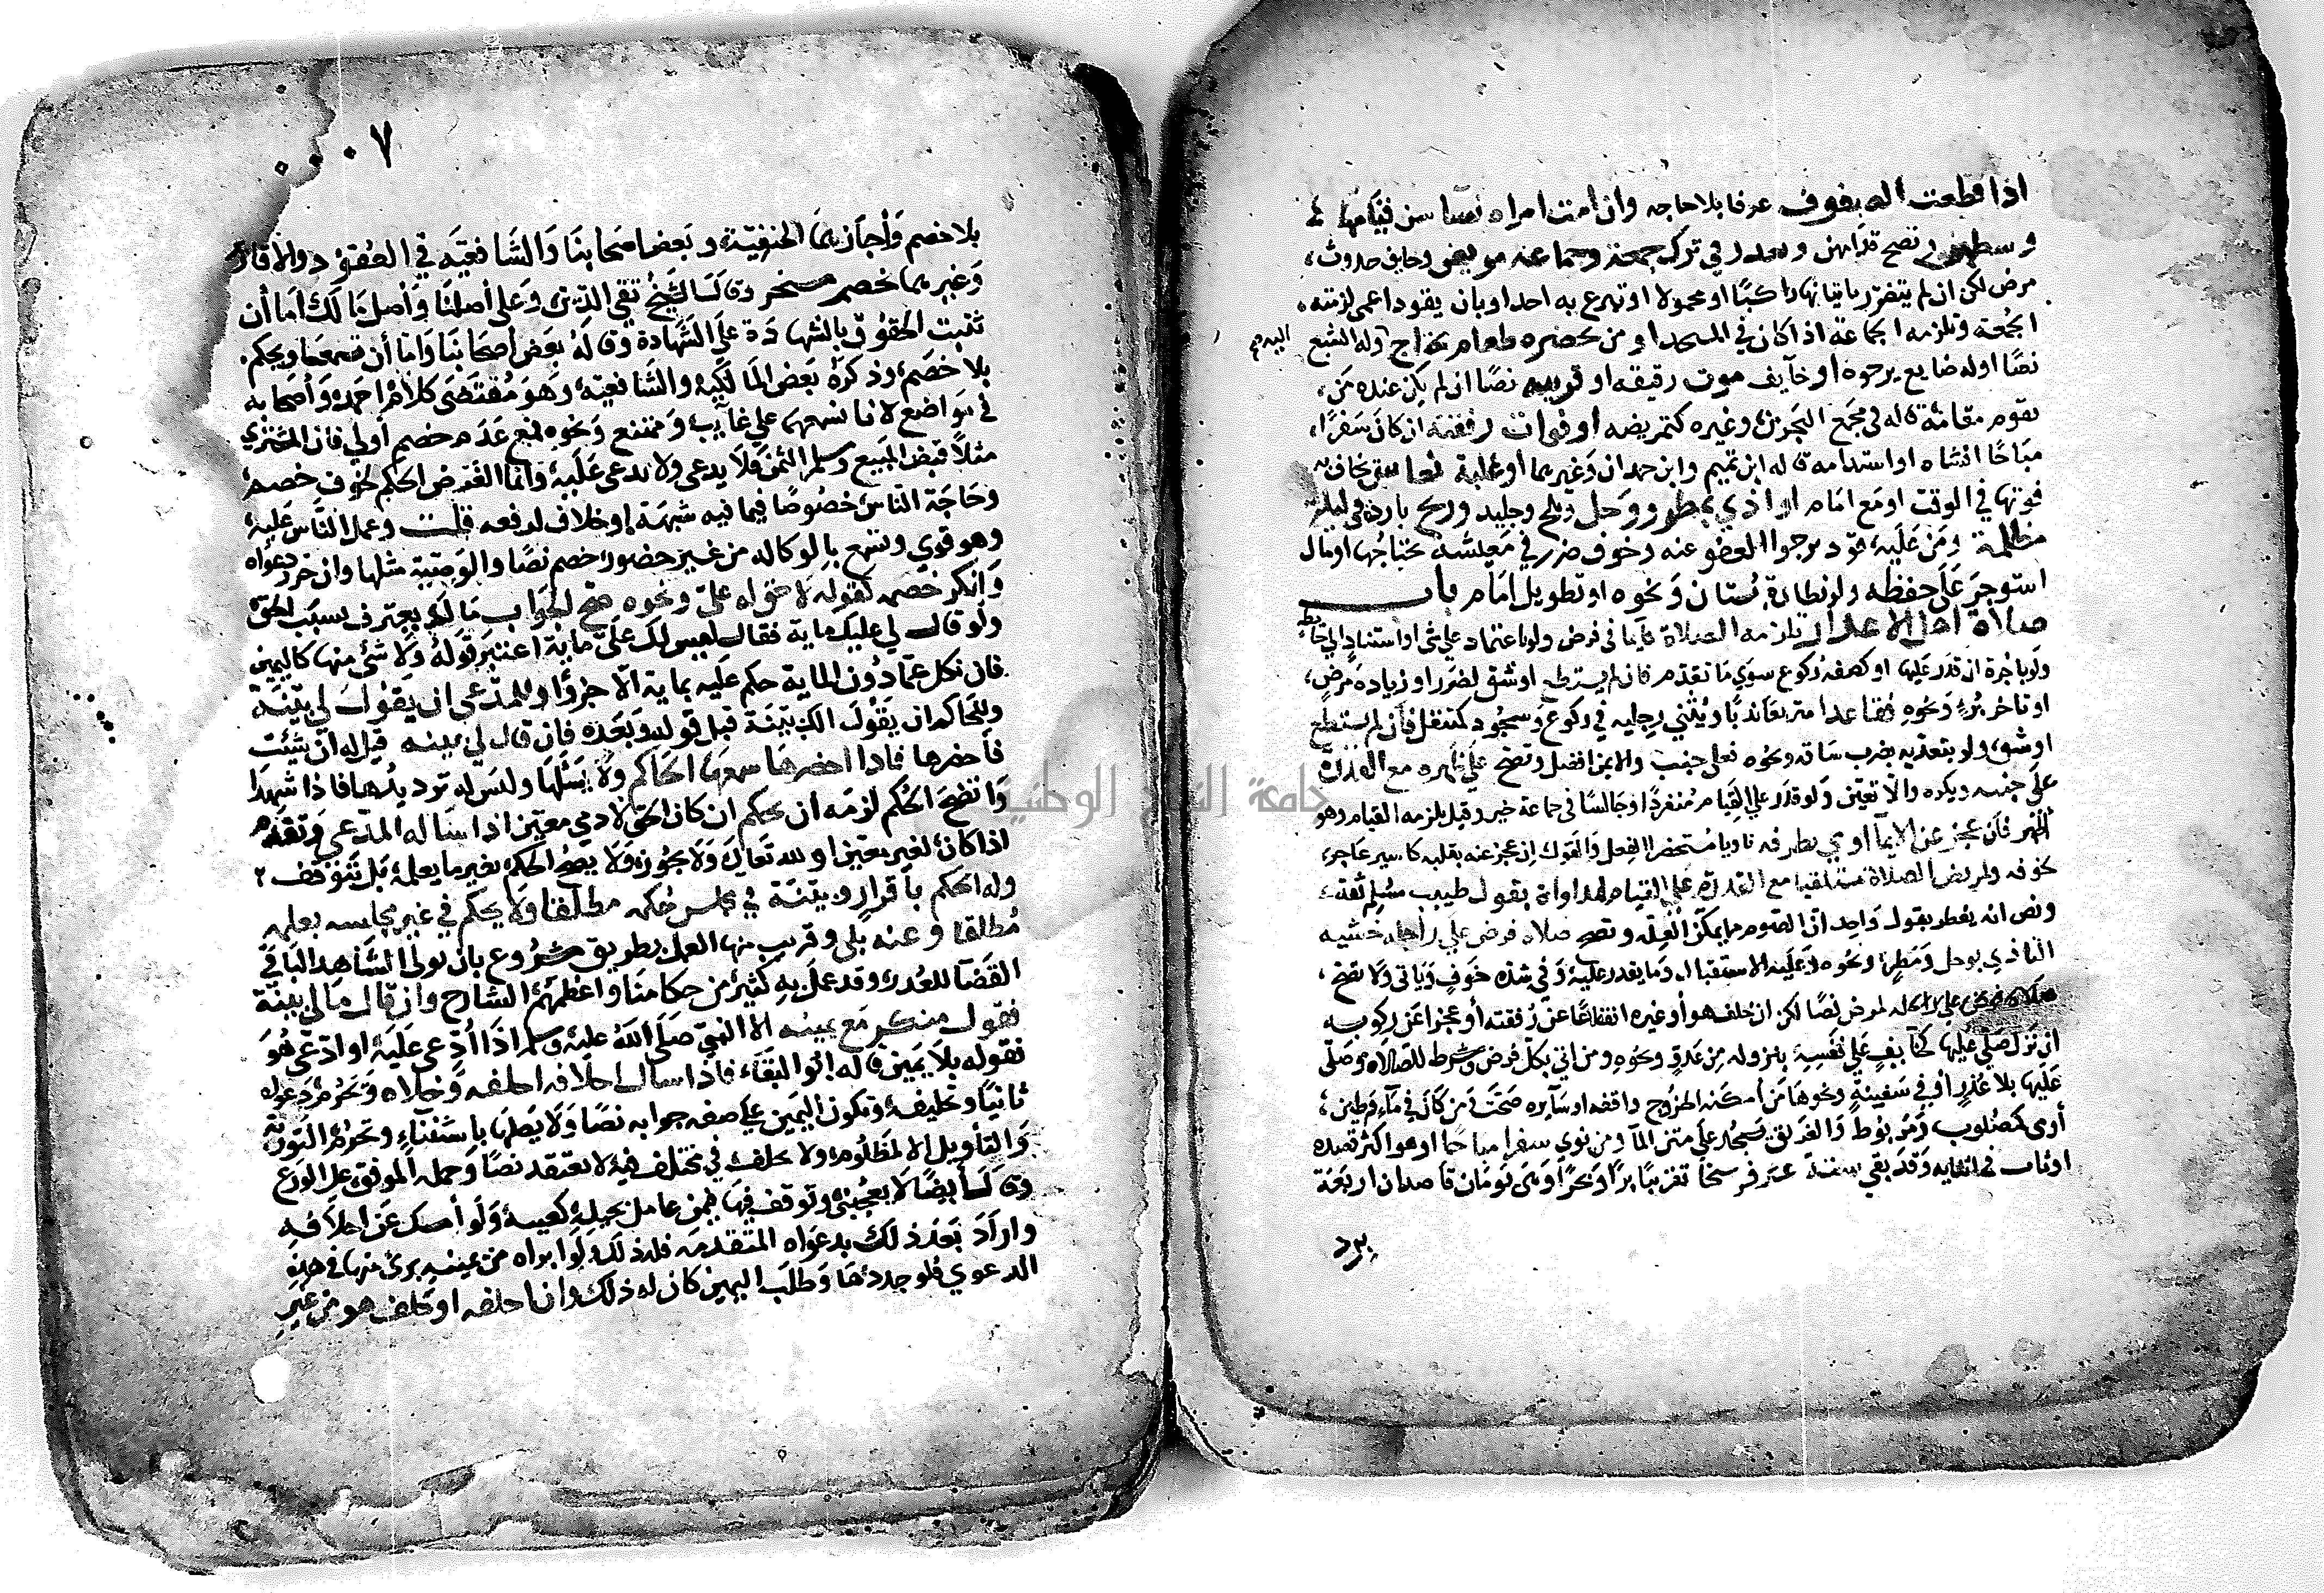 اذا قطعت الصفوف عرفا بلا حاجه وان امت امراه نسا سن قيامها
وسطهن وتصح قدامهن ويعذر في ترك جمعة وجماعة مريض وخايف حدوث
مرض لكن ان لم يتضرر باتيانها راكبا او محمولا او تبرع به احد او بان يقود اعمى لزمته
الجمعة وتلزمه الجماعة اذا كان في المسجد او من بحضره طعام يحتاج اليه وله الشبع
نصا او له ضايع يرجوه او خايف موت رفيقه او قريبه نصا ان لم يكن عنده من
يقوم مقامه قاله في مجمع البحرين وغيره كتمريضه او فوات رفقته ان كان سفرا
مباحا انشاه او استدامه قاله ابن تميم وابن حمدان وغيرهما او غلبة نعاس يخاف به
فوتها في الوقت او مع امام او اذي بمطر ووحل وثلج وجليد وريح بارده في ليلة
مظلمة ومن عليه قود يرجوا العفو عنه وخوف ضرر في معيشة يحتاجها او مال
استوجر على حفظه ولو نطارة بستان ونحوه او تطويل امام باب
صلاة اهل الاعذار تلزمه الصلاة قايما في فرض ولو باعتماد علي شي او استناد الي حايط
ولو باجرة ان قدر عليها او كصفة ركوع سوي ما تقدم فان لم يستطع او شق لضرر او زيادة مرض
او تاخر برء ونحوه فقاعدا متربعا ندبا ويثني رجليه في ركوع وسجود كمتنفل فان لم يستطع
او شق ولو بتعديه بضرب ساقه ونحوه فعلى جنب والايمن افضل وتصح على ظهره مع القدرة
على جنبه ويكره والا تعين ولو قدر علي القيام منفردا وجالسا في جماعة خير وقيل يلزمه القيام وهو
اظهر فان عجز عن الايما اومى بطرفه ناويا مستحضرا الفعل والقول ان عجز عنه بقلبه كاسير عاجز
لخوفه ولمريض الصلاة مستلقيا مع القدرة علي القيام لمداواة بقول طبيب مسلم ثقة
ونص انه يفطر بقول واحد ان الصوم مما يمكن العلة وتصح صلاة فرض علي راحلة خشية
التاذي بوحل ومطر ونحوه وعليه الاستقبال وما يقدر عليه وفي شدة خوف وياتي ولا تصح
صلاة فرض علي راحلة لمرض نصا لكن ان خاف هو او غيره انقطاعا عن رفقته أو عجزا عن ركوبه
ان نزل صلي عليها كخايف على نفسه بنزوله من عدو ونحوه ومن اتي بكل فرض وشرط للصلاة وصلى
عليها بلا عذر او في سفينة ونحوها من أمكنه الخروج واقفه او سايره صحت ومن كان في ماء وطين
أومى كمصلوب ومربوط والغريق يسجد على متن الما ومن نوي سفرا مباحا او هو اكثر قصده
او تاب في اثنايه وقد بقي ستة عشر فرسخا تقريبا برا او بحرا وهى يومان قاصدان اربعة
برد
٠٠٠٧
بلا خصم وأجازهما الحنفية وبعض اصحابنا والشافعيه في العقود والاقارير
وغيرهما بخصم مسخر وقال الشيخ تقي الدين وعلى أصلنا وأصل مالك اما أن
تثبت الحقوق بالشهادة على الشهادة وقاله بعض أصحابنا واما أن تسمعها ويحكم
بلا خصم وذكره بعض المالكية والشافعية وهو مقتضى كلام احمد وأصحابه
في مواضع لانا نسمعها علي غايب وممتنع ونحوه فمع عدم خصم أولي فان المشتري
مثلا قبض المبيع وسلم الثمن فلا يدعي ولا يدعى عليه وانما الغرض الحكم لخوف خصم
وحاجة الناس خصوصا فيما فيه شبهة او خلاف لدفعه قلت وعمل الناس عليه
وهو قوي وتسمع بالوكاله من غير حضور خصم نصا والوصية مثلها وان حرر دعواه
وأنكر خصمه كقوله لا حق له علي ونحوه صح الجواب ما لم يعترف بسبب الحق
ولو قال لي عليك ماية فقال ليس لك علي ماية اعتبر قوله ولا شئ منها كاليمين
فان نكل عما دون الماية حكم عليه بماية الا جزوا وللمدعي ان يقول لي بينة
وللحاكم ان يقول الك بينة قبل قوله وبعده فان قال لي بينه قيل له ان شيئت
فأحضرها فاذا احضرها سمعها الحاكم ولا يسئلها وليس له ترديدها فاذا شهدا
واتضح الحكم لزمه أن يحكم ان كان الحق لادمي معين اذا ساله المدعي وتقدم
اذا كان لغير معين او لله تعالى ولا يجوز ولا يصح الحكم بغير ما يعلمه بل يتوقف
وله الحكم باقرار وبينة في مجلس حكمه مطلقا ولا يحكم في غير مجلسه بعلمه
مطلقا وعنه بلى وقريب منها العمل بطريق مشروع بان يولى الشاهد الباقي
القضا للعذر وقد عمل به كثير من حكامنا واعظمهم الشارح وان قال ما لي بينة
فقول منكر مع يمينه الا النبي صلى الله عليه وسلم اذا أدعي عليه او ادعى هو
فقوله بلا يمين قاله ابو البقاء فاذا سال احلافه احلفه وخلاه وتحرم دعواه
ثانيا وتحليفه وتكون اليمين على صفه جوابه نصا ولا يصلها باستثناء وتحرم التورية
والتأويل الا لمظلوم ولا يحلف في مختلف فيه لا يعتقده نصا وحمله الموفق على الورع
وقال أيضا لا يعجبني وتوقف فيها فيمن عامل بحيلة كعينة ولو أمسك عن احلافه
واراد بعد ذلك بدعواه المتقدمه فله ذلك ولو ابراه من يمينه برئ منها في هذه
الدعوي فلو جددها وطلب اليمين كان له ذلك وان احلفه او حلف هو من غير
جامعة النجاح الوطنية